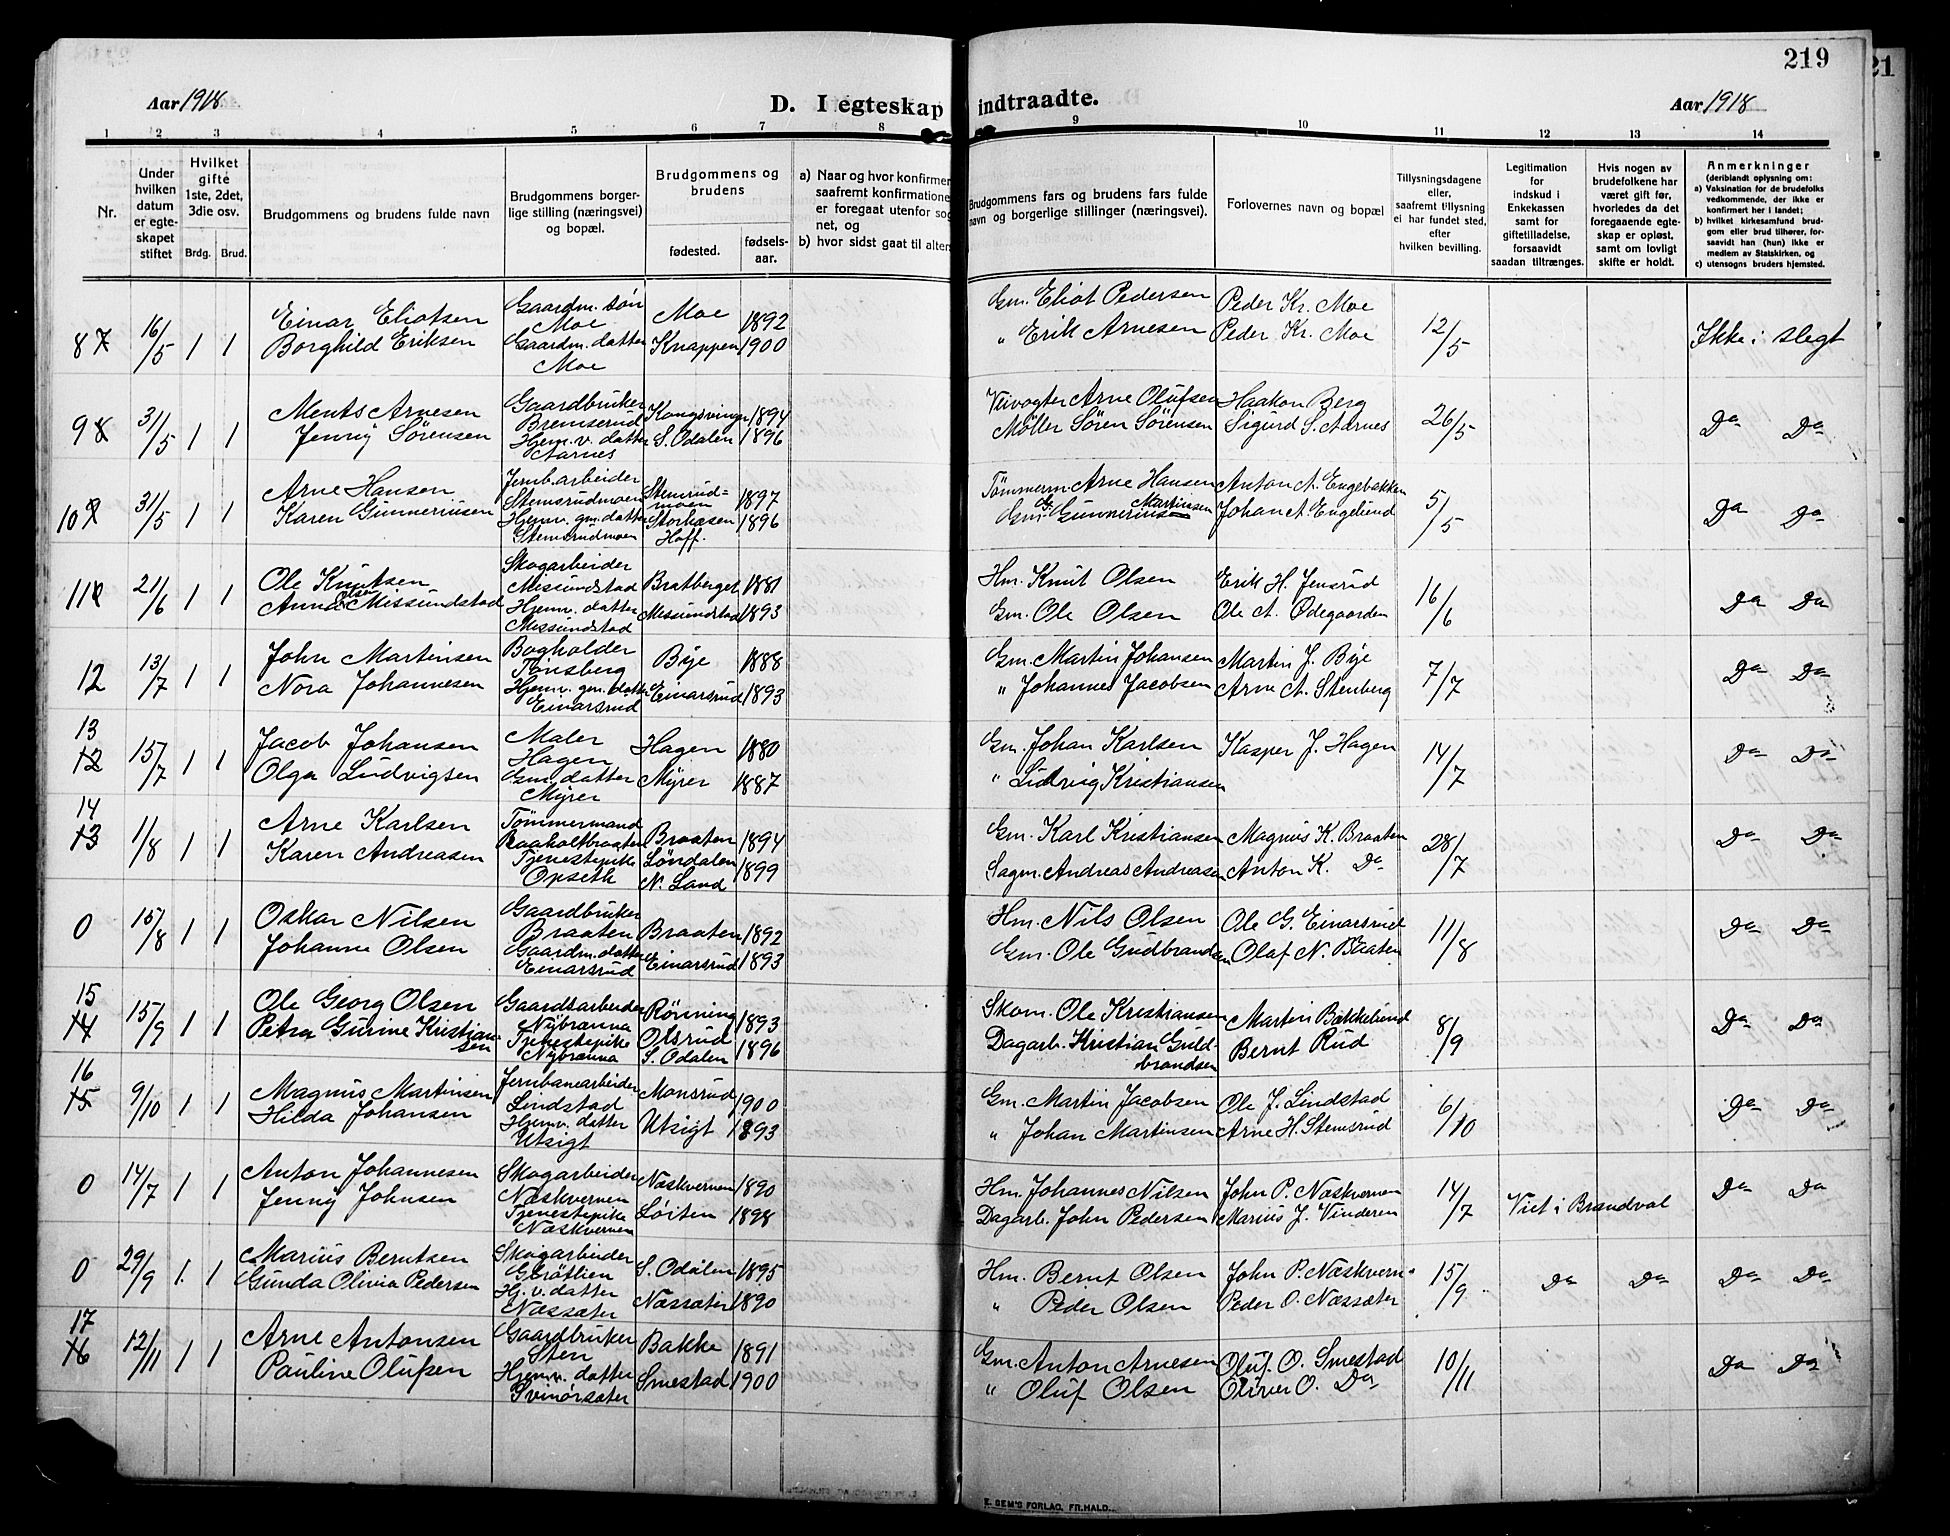 219
Aar 1918.
D. I egteskap indtraadte.
Aar 1918
1 2 3 4 5 6 7 8 9 10 11 12 13 14
Nr.
Under hvilken datum er egteskapet stiftet
Hvilket gifte 1ste, 2det, 3die osv.
Brdg. Brud.
Brudgommens og brudens fulde navn
Brudgommens borgerlige stilling (næringsvei) og bopæl.
Brudgommens og brudens
fødested.
fødselsaar.
a) Naar og hvor konfirmer
saafremt konfirmatione
er foregaat utenfor sog
net, og
b) hvor sidst gaat til alters
Brudgommens fars og brudens fars fulde
navn og borgerlige stillinger (næringsvei).
Forlovernes navn og bopæl
Tillysningsdagene eller, saafremt tillysning ei har fundet sted, efter hvilken bevilling.
Legitimation for indskud i Enkekassen samt for giftetilladelse, forsaavidt saadan tiltrænges.
Hvis nogen av brudefolkene har været gift før, hvorledes da det foregaaende egteskap er opløst, samt om lovligt skifte er holdt.
Anmerkninger
(deriblandt oplysning om:
a) Vaksination for de brudefolks vedkommende, der ikke er konfirmert her i landet;
b) hvilket kirkesamfund brudgom eller brud tilhører, forsaavidt han (hun) ikke er medlem av Statskirken, og
c) utensogns bruders hjemsted.
87 16/5 1 1 Einar Eliotsen Gaardm. søn Moe Moe 1892 Gm. Eliot Pedersen Peder Kr. Moe 12/5 Ikke i slegt
Borghild Eriksen Gaardm. datter Moe Knappen 1900 " Erik Arnesen Peder Kr. Moe
98 31/5 1 1 Ments Arnesen Gaardbruker Bremserud Kongsvinger 1894 Veivogter Arne Olufsen Haakon Berg 26/5 Da Da
Jenny Sørensen Hjem.v. datter Aarnes S. Odalen 1896 Møller Søren Sørensen Sigurd S. Aarnes
109 31/5 1 1 Arne Hansen Jernb.arbeider Stemsrudmoen Stemsrudmoen 1897 Tømmerm. Arne Hansen Anton A. Engebakken 5/5 Da Da
Karen Gunneriusen Hjemv. gm. datter Stemsrudmoen Storhasen Hoff. 1896 Gm. G. Gunnerius Martinsen Johan A. Engelund
110 21/6 1 1 Ole Knutsen Skogarbeider Missundstad Bratberget 1881 Hm. Knut Olsen Erik H. Jensrud 16/6 Da Da
Anna Olsen Missundstad Hjemv. datter Missundstad Missundstad 1893 Gm. Ole Olsen Ole A. Ødegaarden
12 13/7 1 1 John Martinsen Bogholder Tønsberg Bye 1888 Gm. Martin Johansen Martin J. Bye 7/7 Da Da
Nora Johannesen Hjemv. gm. datter Einarsrud Einarsrud 1893 " Johannes Jacobsen Arne A. Stenberg
13 12 15/7 1 1 Jacob Johansen Maler Hagen Hagen 1880 Gm. Johan Karlsen Kasper J. Hagen 14/7 Da Da
Olga Ludvigsen Gm. datter Myrer Myrer 1887 " Ludvig Kristiansen
14 13 1/8 1 1 Arne Karlsen Tømmermand Raaholtbraaten Braaten 1894 Gm. Karl Kristiansen Magnus K. Braaten 28/7 Da Da
Karen Andreasen Tjenestepike Opseth Løndalen N. Land 1899 Sagm. Andreas Andreasen Anton K. Da
0 15/8 1 1 Oskar Nilsen Gaardbruker Braaten Braaten 1892 Hm. Nils Olsen Ole G. Einarsrud 11/8 Da Da
Johanne Olsen Gaardm. datter Einarsrud Einarsrud 1893 Gm. Ole Gudbrandsen Olaf N. Braaten
15 14 15/9 1 1 Ole Georg Olsen Gaardsarbeider Nybrænna Rønning 1893 Skom. Ole Kristiansen Martin Bækkelund 8/9 Da Da
Petra Gurine Kristiansen Tjenestepike Nybrænna Olsrud S. Odalen 1896 Dagarb. Kristian Guldbrandsen Bernt Rud
16 15 9/10 1 1 Magnus Martinsen Jernbanearbeider Lindstad Monsrud 1900 Gm. Martin Jacobsen Ole J. Lindstad 6/10 Da Da
Hilda Johansen Hjemv. datter Utsigt Utsigt 1893 " Johan Martinsen Arne H. Stemsrud
0 14/7 1 1 Anton Johannesen Skogarbeider Næskvernen Næskvernen 1890 Hm. Johannes Nilsen John P. Næskvernen 14/7 Viet i Brandval Da Da
Jenny Johnsen Tjenestepike Næskvernen Løiten 1898 Dagarb. John Pedersen Marius J. Vinderen
0 29/9 1. 1 Marius Berntsen Skogarbeider Glrøtlien S. Odalen 1895 Hm. Bernt Olsen John P. Næskvern. 15/9 Da Da Da Da
Gunda Olivia Pedersen Hj.v. datter Næssæter Næssæter 1890 " Peder Olsen Peder O. Næssæter
17 16 12/11 1 1 Arne Antonsen Gaardbruker Sten Bakke 1891 Gm. Anton Arnesen Oluf O. Smestad 10/11 Da Da
Pauline Olufsen Hjemv. datter Svinørsæter Smestad 1900 " Oluf Olsen Oliver O. Da
E. SEM'S FORLAG, FR.HALD.